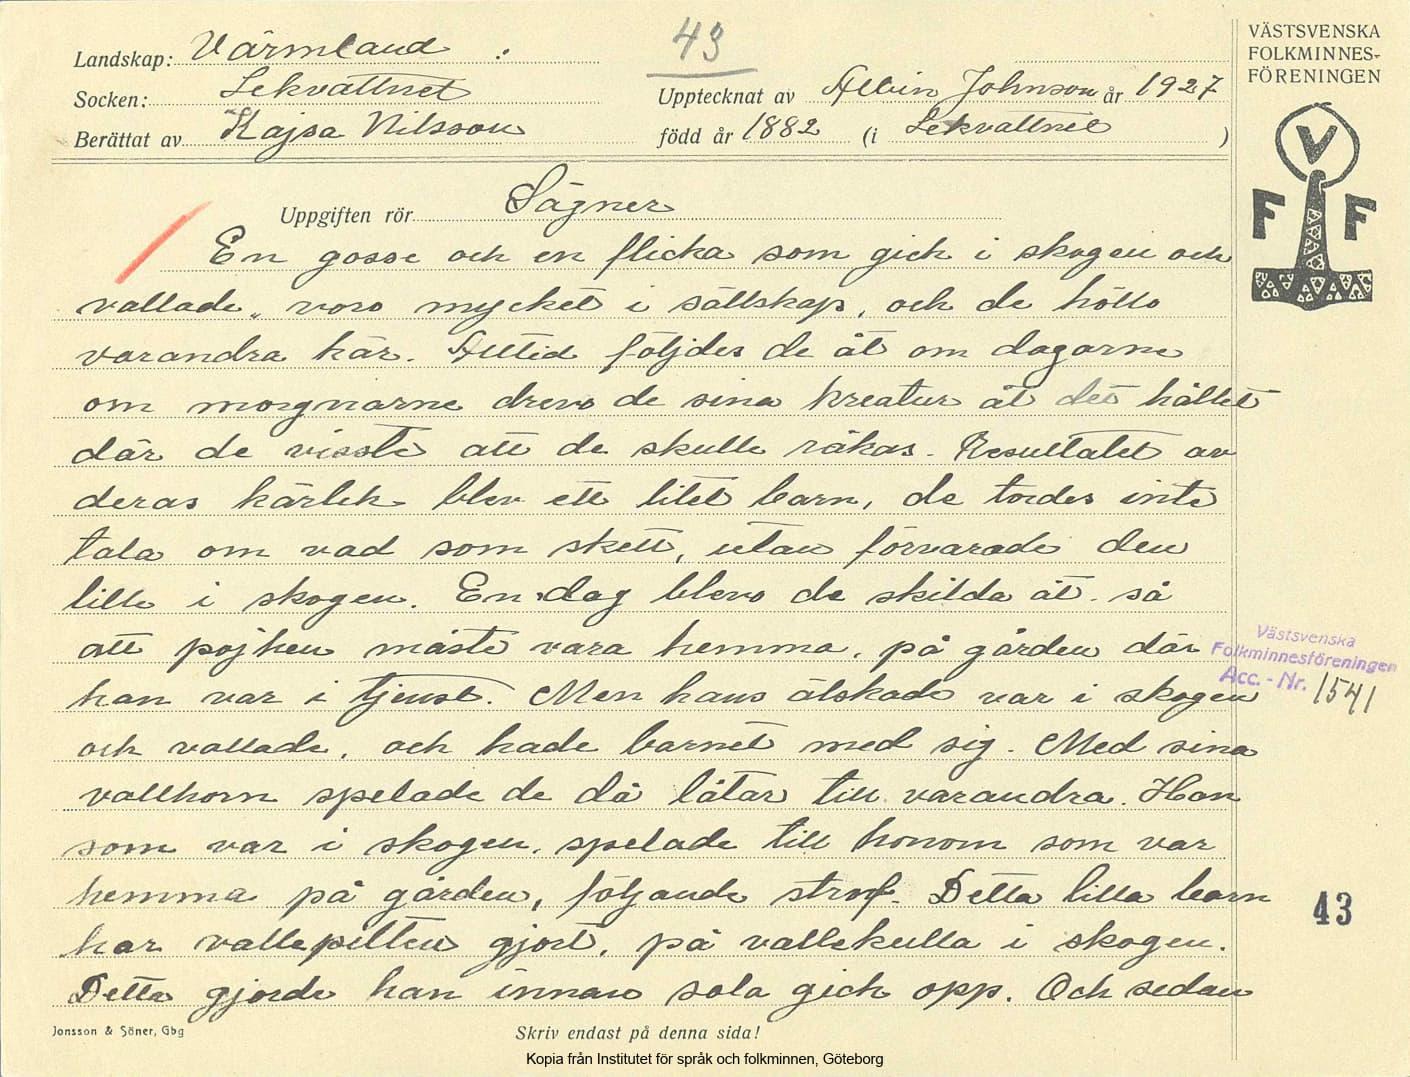 43
VÄSTSVENSKA
FOLKMINNES-
FÖRENINGEN
Landskap: Värmland
Socken: Lekvattnet
Upptecknat av Albin Johnson år 1927
Berättat av Kajsa Nilsson
född år 1882 (i Lekvattnet )
V
F F
Uppgiften rör Sägner
En gosse och en flicka som gick i skogen och
vallade, voro mycket i sällskap, och de höllo
varandra kär. Alltid följdes de åt om dagarne
om morgnarne drevo de sina kreatur åt det hållet
där de visste att de skulle råkas. Resultatet av
deras kärlek blev ett litet barn, de tordes inte
tala om vad som skett, utan förvarade den
lille i skogen. En dag blevo de skilda åt. så
att pojken måste vara hemma, på gården där
han var i tjenst. Men hans älskade var i skogen
och vallade, och hade barnet med sig. Med sina
vallhorn spelade de då låtar till varandra. Hon
som var i skogen, spelade till honom som var
hemma på gården, följande strof. Detta lilla barn
har vallepilten gjort, på vallekulla i skogen.
Detta gjorde han innan sola gick opp. Och sedan
Västsvenska
Folkminnesföreningen
Acc.-Nr. 1541
43
Jonsson & Söner, Gbg
Skriv endast på denna sida!
Kopia från Institutet för språk och folkminnen, Göteborg